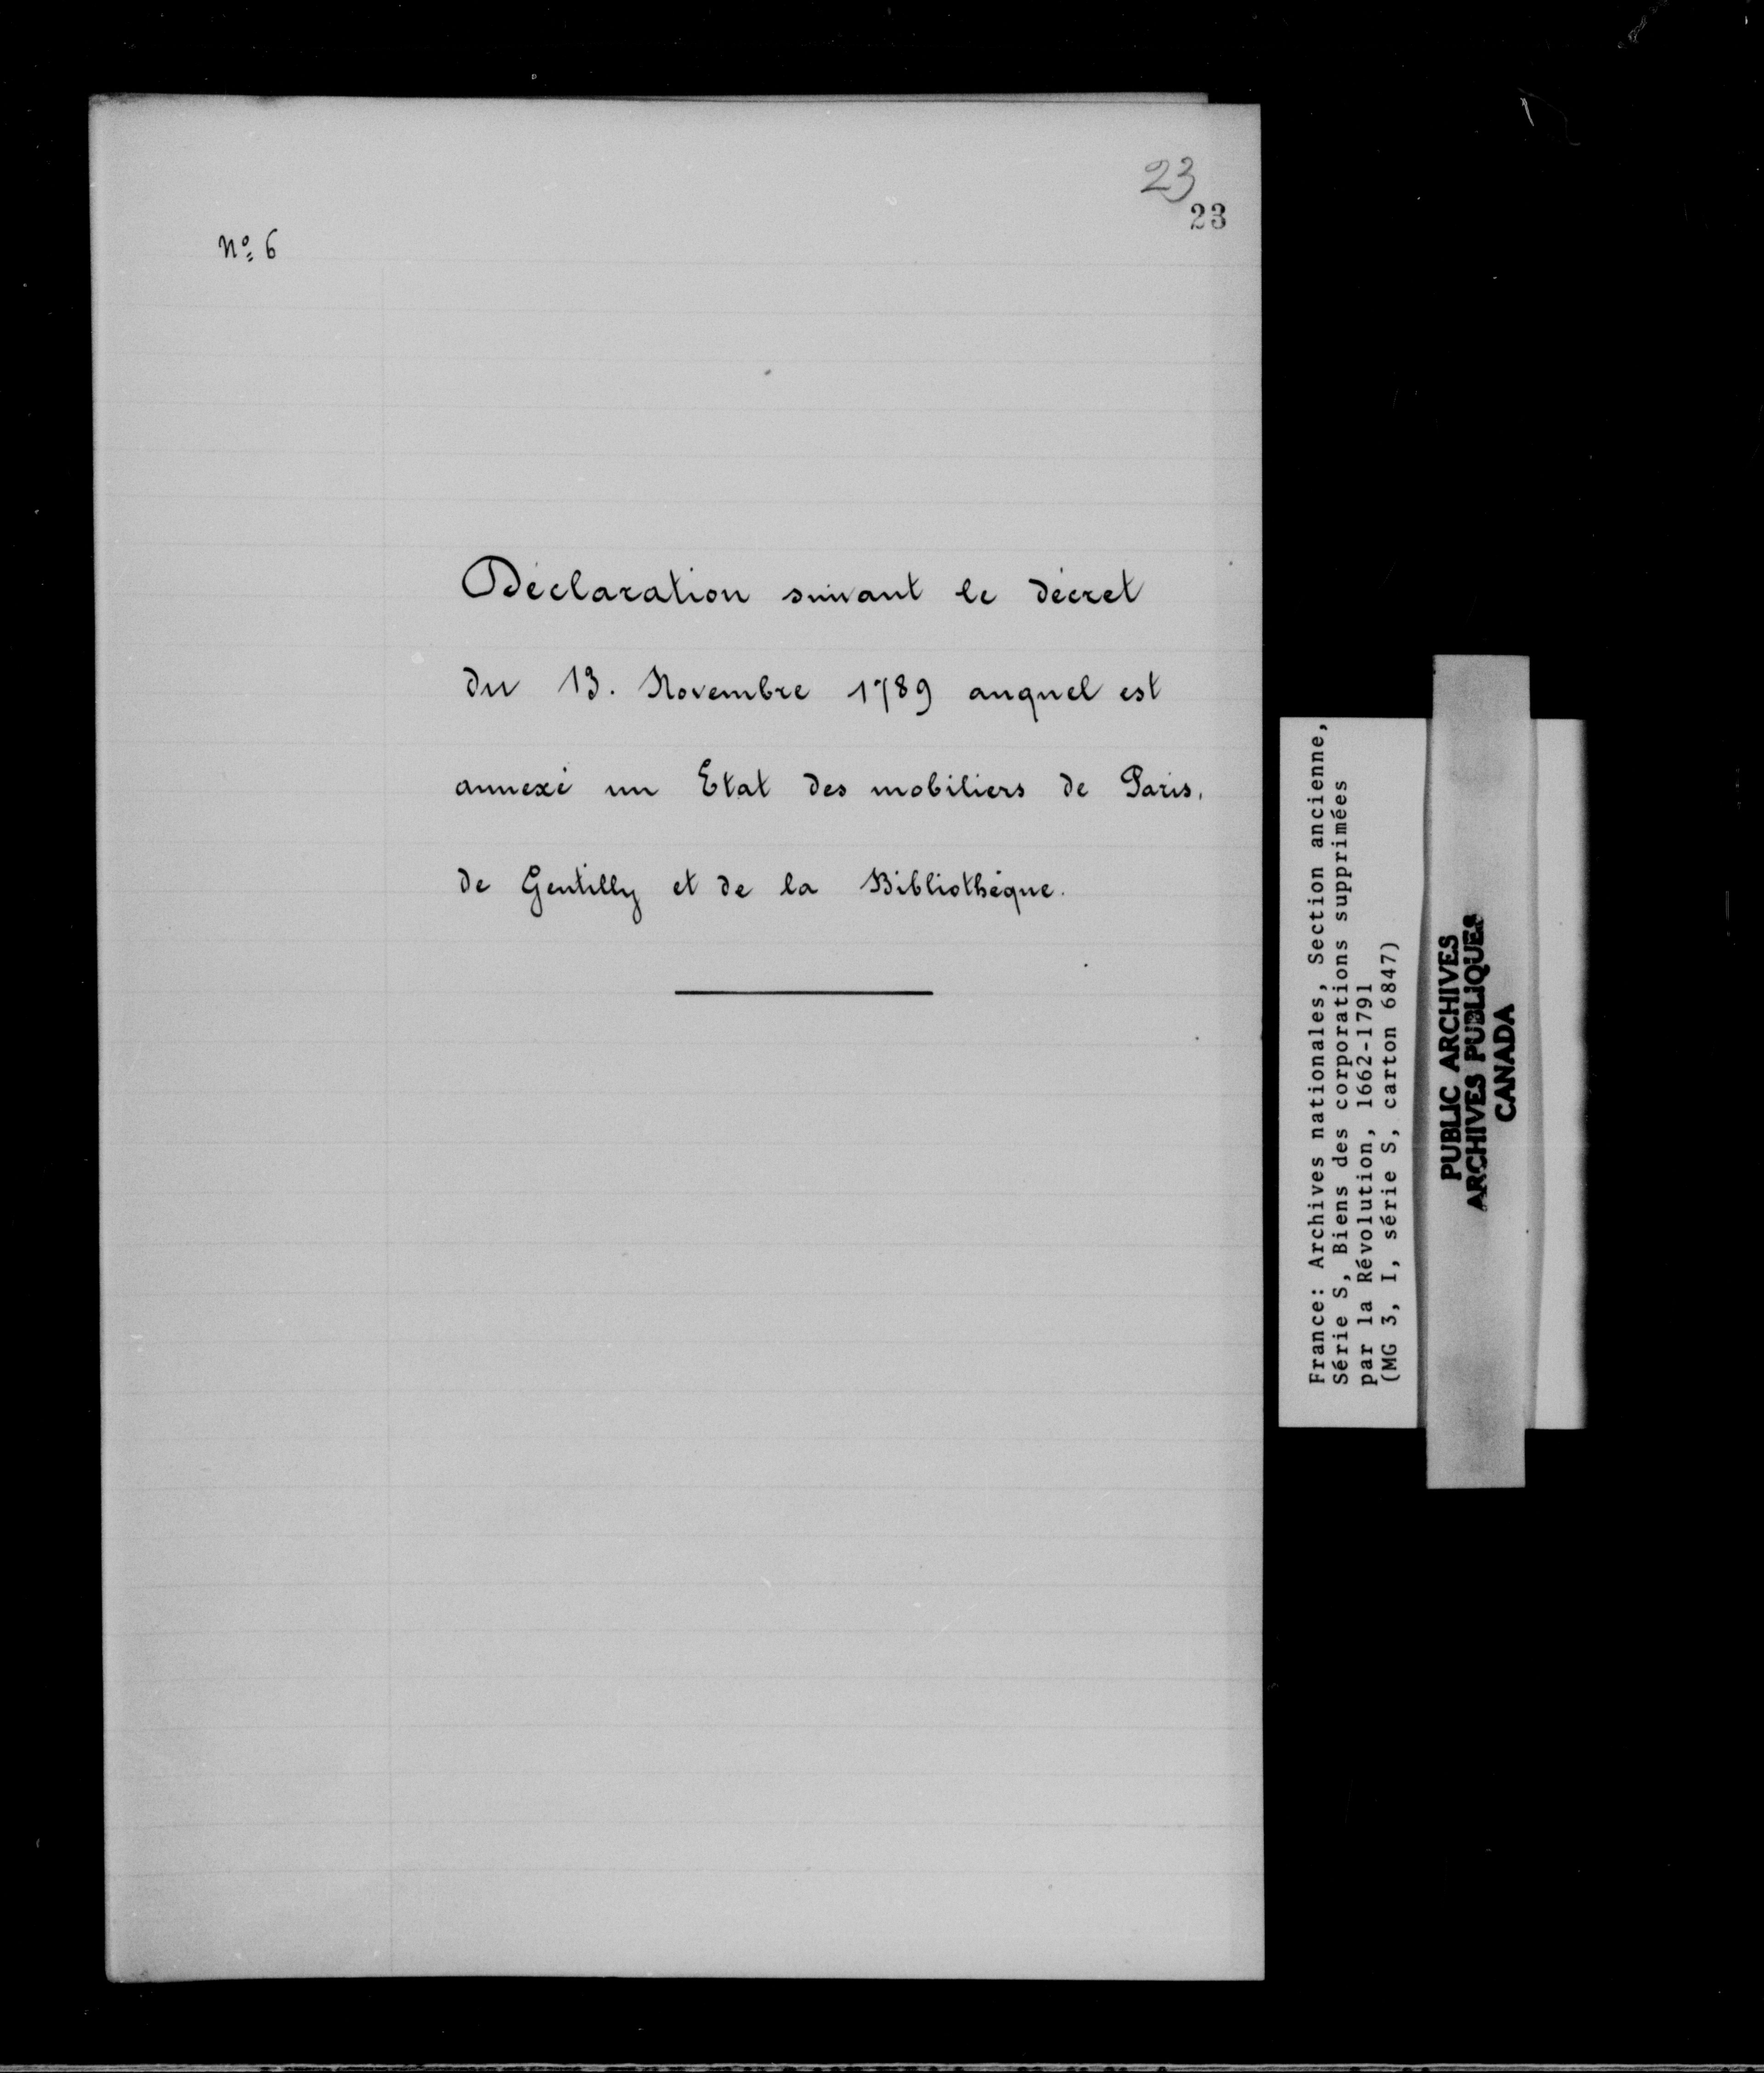 23
23
Nº 6
Déclaration suivant le décret
du 13. Novembre 1789 auquel est
annexé un Etat des mobiliers de Paris,
de Gentilly et de la Bibliothèque.
France: Archives nationales, Section ancienne,
Série S, Biens des corporations supprimées
par la Révolution, 1662-1791
(MG 3, I, série S, carton 6847)
PUBLIC ARCHIVES
ARCHIVES PUBLIQUES
CANADA